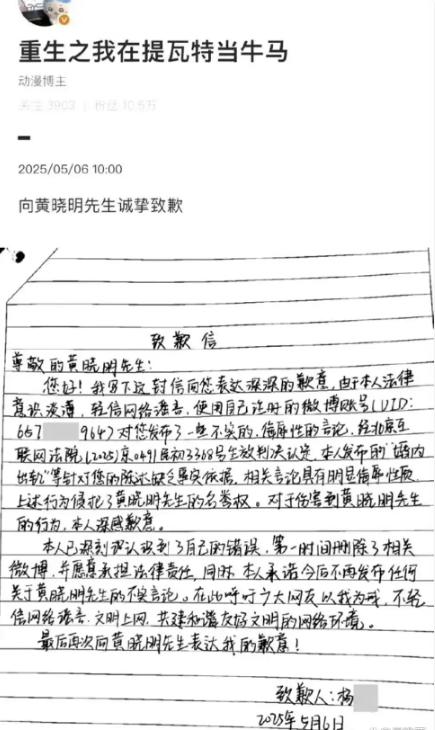 重生之我在提瓦特当牛马
动漫博主
关注 3903 | 粉丝 10.5万
2025/05/06 10:00
向黄晓明先生诚挚致歉
致歉信
尊敬的黄晓明先生:
您好!我写下这封信向您表达深深的歉意,由于本人法律
意识淡薄,轻信网络谣言,使用自己注册的微博账号(UID:
657 9647)对您发布了一些不实的、侮辱性的言论,经北京互
联网法院(2025)京0491民初3368号生效判决认定,本人发布的“婚内
出轨”等针对您的陈述缺乏事实依据,相关言论具有明显侮辱性质,
上述行为侵犯了黄晓明先生的名誉权。对于伤害到黄晓明先生
的行为,本人深感歉意。
本人已深刻承认识到了自己的错误,第一时间删除了相关
微博,并愿意承担法律责任,同时,本人承诺今后不再发布任何
关于黄晓明先生的不实言论。在此呼吁广大网友以我为戒,不轻
信网络谣言,文明上网,共建和谐友好文明的网络环境。
最后再次向黄晓明先生表达我的歉意!
致歉人:杨
2025年5月6日